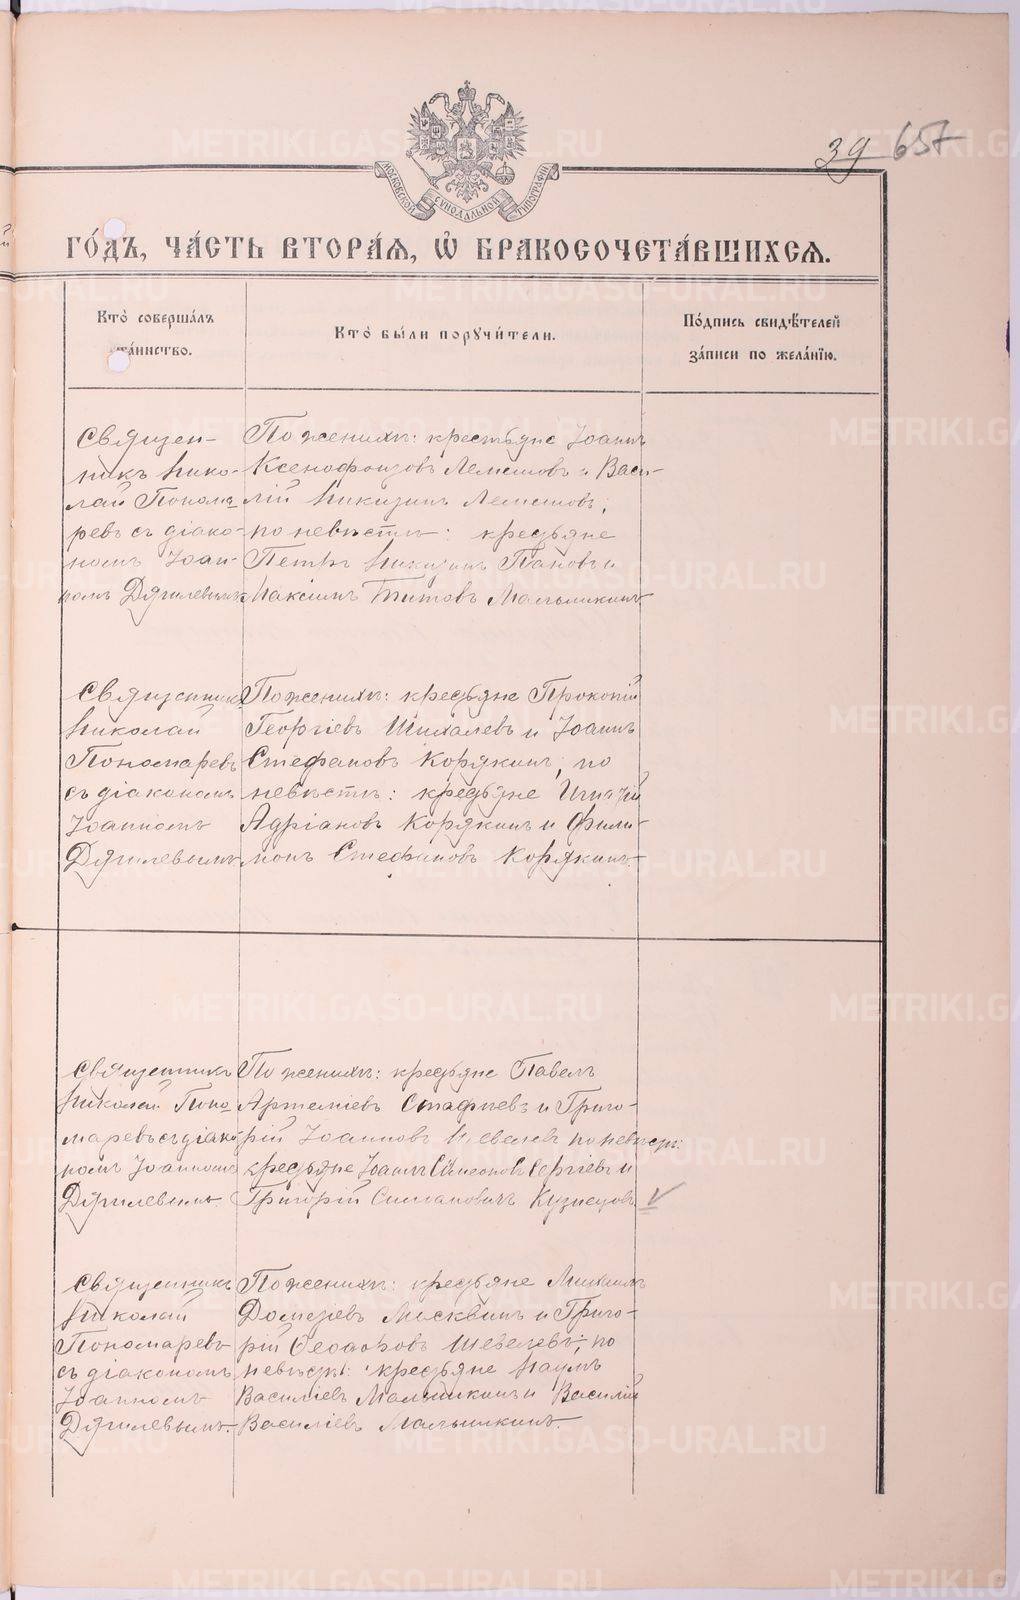 39 657
МОСКОВСКОЙ СѴНОДАЛЬНОЙ ТИПОГРАФІИ
ГО́ДЪ, ЧА́СТЬ ВТОРА́Я, Ѡ҆ БРАКОСОЧЕТА́ВШИХСЯ.
Кто̀ соверша́лъ
та́инство.
Кто̀ бы́ли порꙋчи́тели.
По́дпись свидѣ́телей
за́писи по жела́нїю.
Священ-
никъ Нико-
лай Понома-
ревъ съ діако-
номъ Іоан-
номъ Дягилевымъ
По женихѣ: крестьяне Іоаннъ
Ксенофонтовъ Лемешовъ и Васи-
лій Никитинъ Лемешовъ;
по невѣстѣ: крестьяне
Петръ Никитинъ Пановъ и
Максимъ Титовъ Малышкинъ
Священникъ
Николай
Пономаревъ
съ діакономъ
Іоанномъ
Дягилевымъ
По женихѣ: крестьяне Прокопій
Георгіевъ Шихалевъ и Іоаннъ
Стефановъ Корякинъ; по
невѣстѣ: крестьяне Игнатій
Адріановъ Корякинъ и Фили-
монъ Стефановъ Корякинъ.
Священникъ
Николай Поно-
маревъ съ діако-
номъ Іоанномъ
Дягилевымъ.
По женихѣ: крестьяне Павелъ
Артеміевъ Стафіевъ и Григо-
рій Іоанновъ Шевелевъ по невѣстѣ:
крестьяне Іоаннъ Симеоновъ Сергіевъ и
Григорій Кузнецовъ
Священникъ
Николай
Пономаревъ
съ діакономъ
Іоанномъ
Дягилевымъ.
По женихѣ: крестьяне Михаилъ
Москвинъ и Григо-
рій Ѳеодоровъ Шевелевъ; по
невѣстѣ: крестьяне Наумъ
Василіевъ Малышкинъ и Василій
Василіевъ Малышкинъ.
METRIKI.GASO-URAL.RU